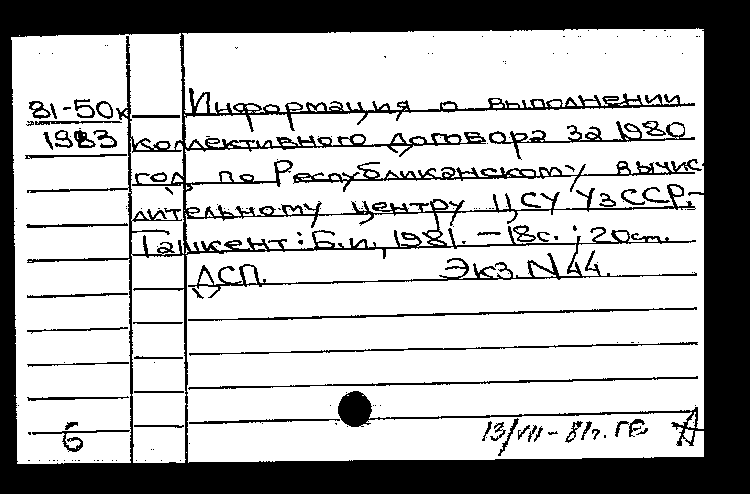 81-50к Информация о выполнении
1983 коллективного договора за 1980
год по Республиканскому вычис-
лительному центру ЦСУ УзССР.-
Ташкент: Б.и., 1981. - 18с.; 20см.
ДСП. Экз. N 44.
6 13/VII - 81г. ГБ